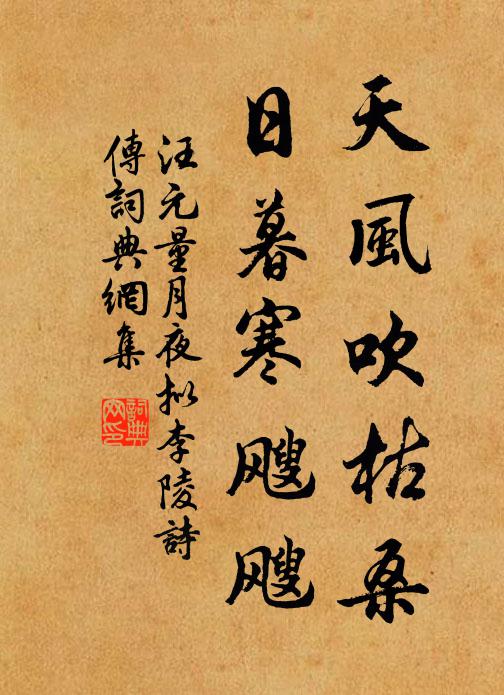 天風吹枯桑
日暮寒飕飕
汪元量月夜拟李陵詩
傳詞典網集
詞典網印